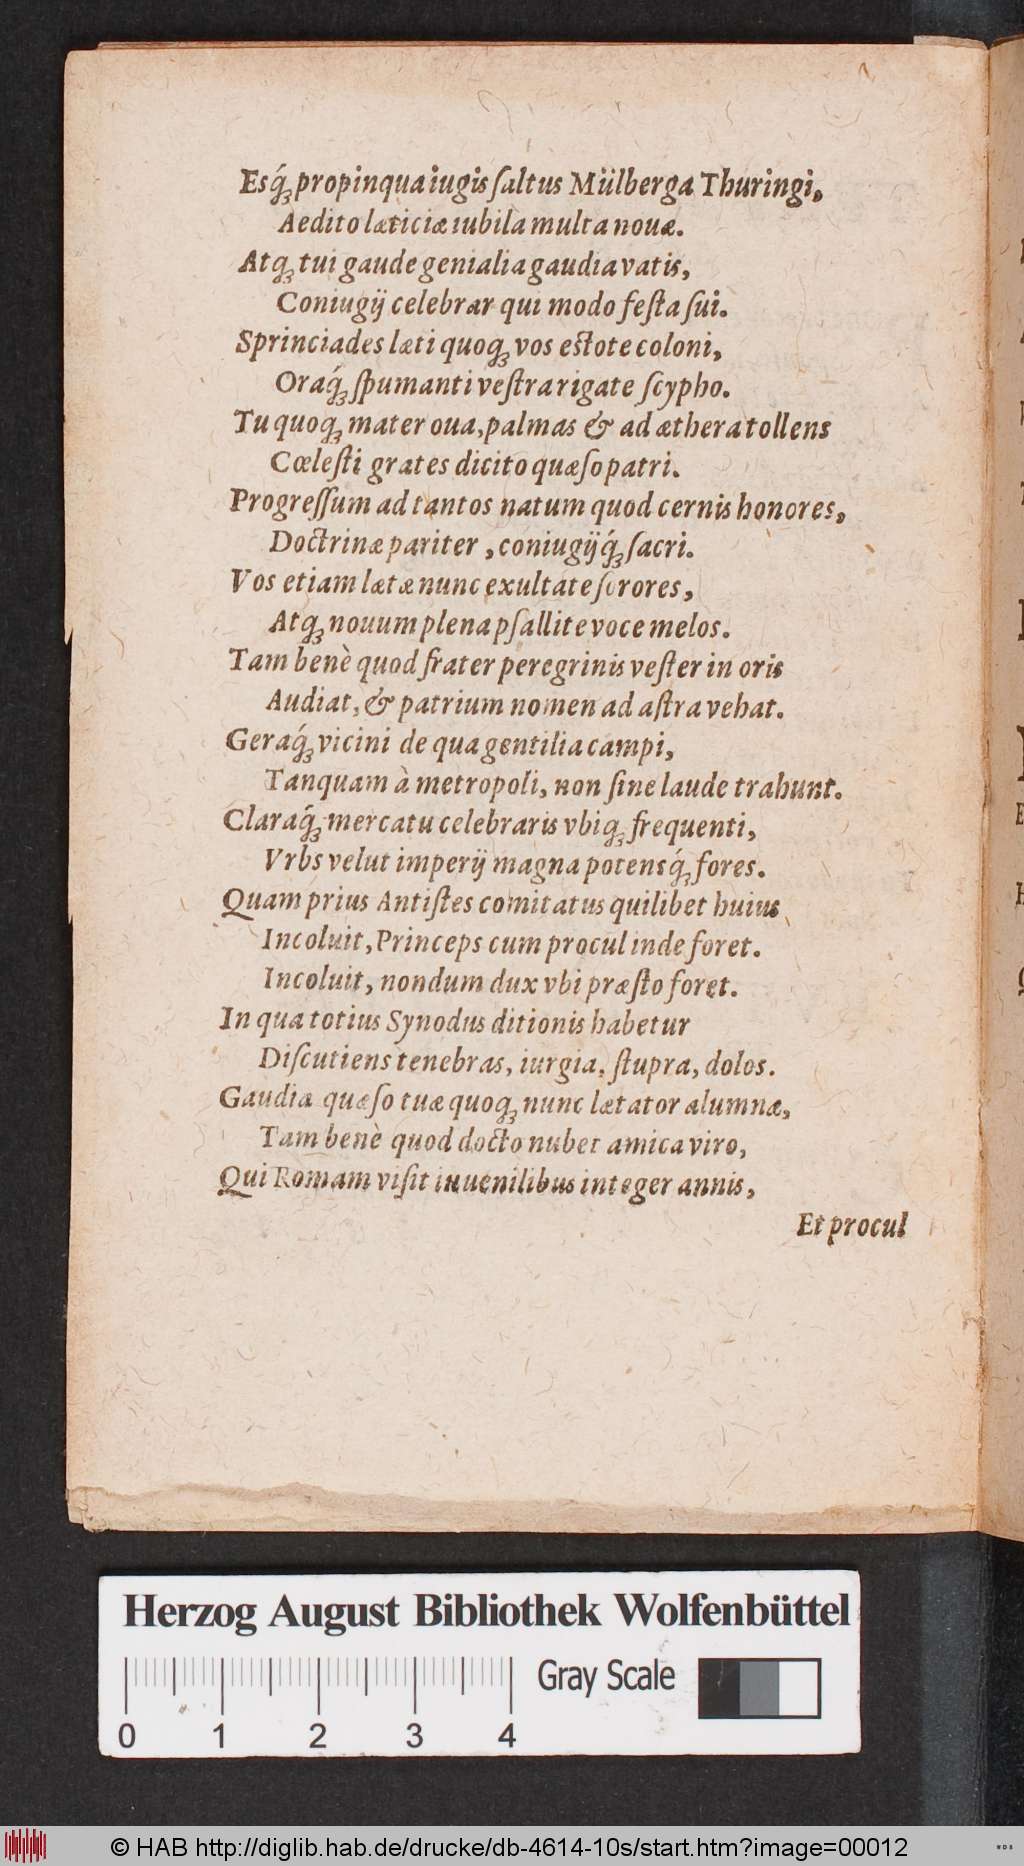 Esq́ꝫ propinqua iugis ſaltus Mülberga Thuringi,
Aedito læticiæ iubila multa nouæ.
Atqꝫ tui gaude genialia gaudia vatis,
Coniugij celebrar qui modo feſta ſui.
Sprinciades læti quoqꝫ vos estote coloni,
Oraq́ꝫ ſpumanti veſtra rigate ſcypho.
Tu quoqꝫ mater oua, palmas & ad æthera tollens
Cœleſti grates dicito quæſo patri.
Progreſſum ad tantos natum quod cernis honores,
Doctrinæ pariter, coniugijq́ꝫ ſacri.
Vos etiam lætæ nunc exultate ſorores,
Atqꝫ nouum plena pſallite voce melos.
Tam benè quod frater peregrinis veſter in oris
Audiat, & patrium nomen ad aſtra vehat.
Geraq́ꝫ vicini de qua gentilia campi,
Tanquam à metropoli, non ſine laude trahunt.
Claraq́ꝫ mercatu celebraris vbiqꝫ frequenti,
Vrbs velut imperij magna potensq́ꝫ fores.
Quam prius Antiſtes comitatus quilibet huius
Incoluit, Princeps cum procul inde foret.
Incoluit, nondum dux vbi præſto foret.
In qua totius Synodus ditionis habetur
Diſcutiens tenebras, iurgia, ſtupra, dolos.
Gaudia quæſo tuæ quoqꝫ nunc lætator alumnæ,
Tam benè quod docto nubet amica viro,
Qui Romam viſit iuuenilibus integer annis,
Et procul
Herzog August Bibliothek Wolfenbüttel
Gray Scale
0 1 2 3 4
© HAB http://diglib.hab.de/drucke/db-4614-10s/start.htm?image=00012